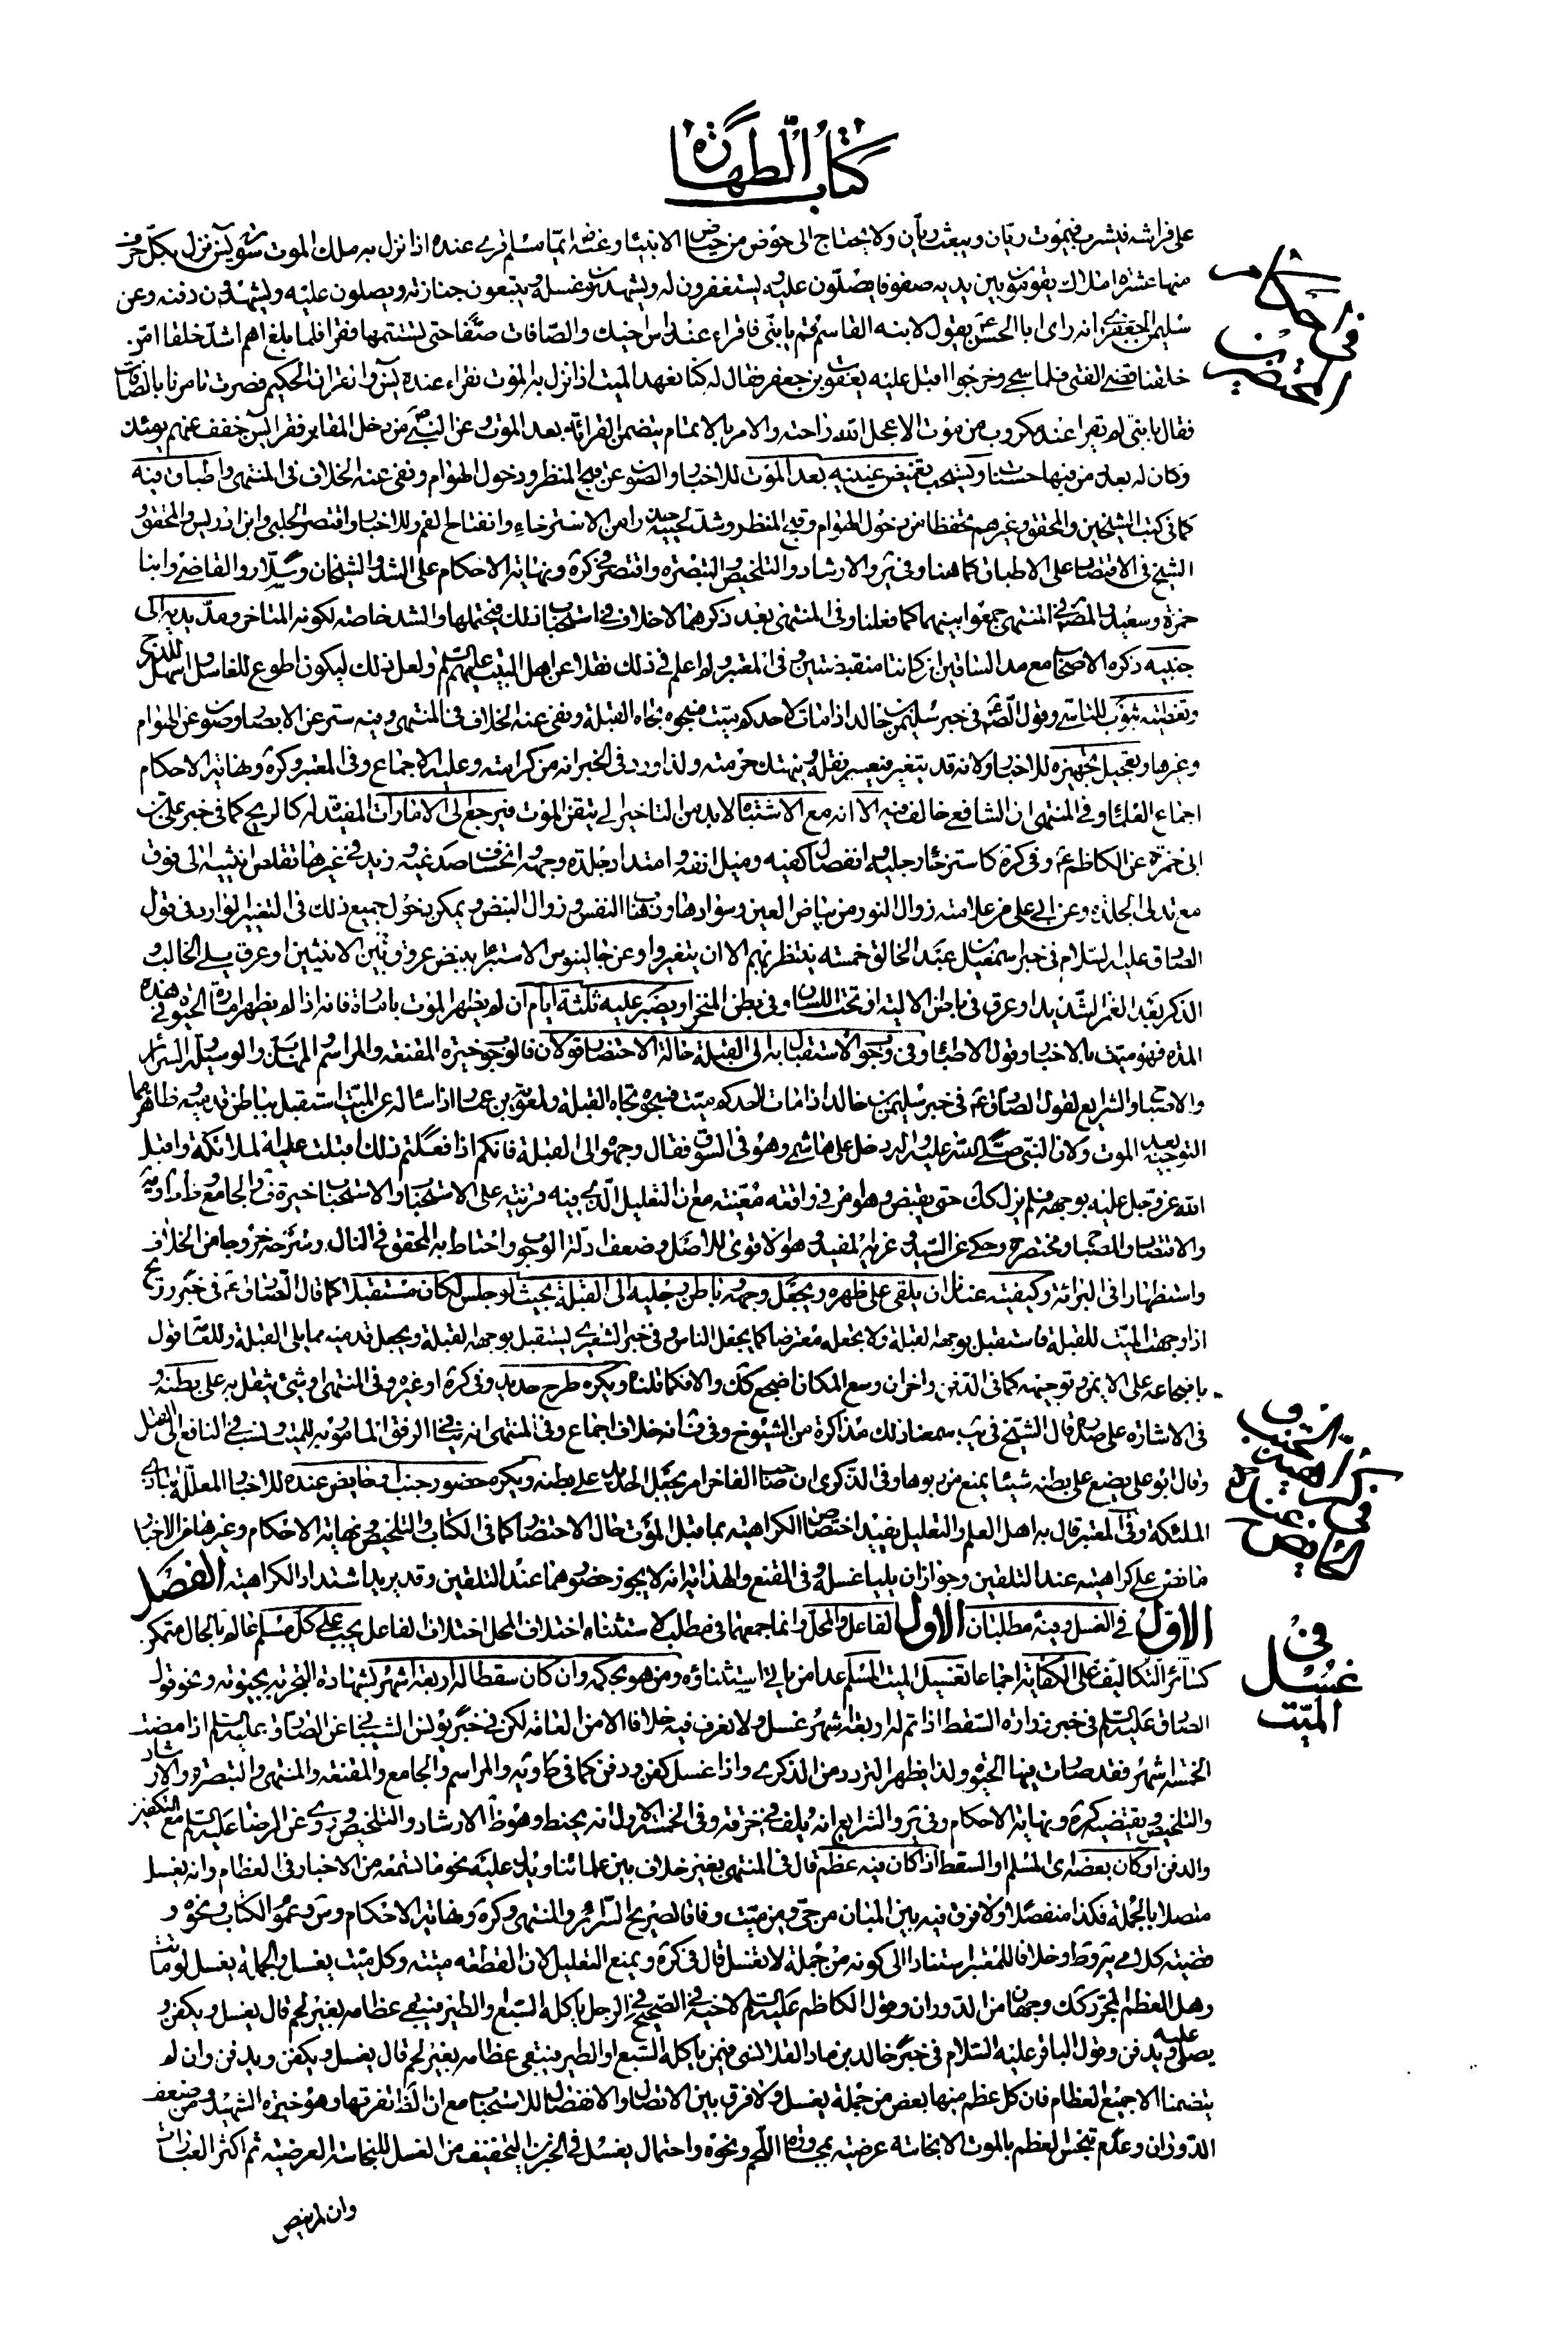 كتاب الطهارة
على فراشه فيشرب فيموت ريان ويبعث ريان ولا يحتاج الى حوض من حياض الانبياء وعنه ايما مسلم قرء عنده اذا نزل به ملك الموت سورة يس نزل بكل حرف
منها عشرة املاك يقومون بين يديه صفوفا يصلون عليه ويستغفرون له ويشهدون غسله ويتبعون جنازته ويصلون عليه ويشهدون دفنه وعن
سليمن الجعفري انه راى ابا الحسن ع يقول لابنه القاسم قم يا بني فاقراء عند راس اخيك والصافات صفا حتى تستتمها فقرا فلما بلغ اهم اشد خلقا امن
خلقنا قضى الفتى فلما سجى وخرجوا اقبل عليه يعقوب بن جعفر فقال له كنا نعهد الميت اذا نزل به الموت نقراء عنده يس والقران الحكيم فصرت تامرنا بالصافات
فقال يا بني لم تقرا عند مكروب من موت الا عجل الله راحته والامر بالاتمام يتضمن القراءة بعد الموت وعن النبي ص من دخل المقابر فقرا يس خفف عنهم يومئذ
وكان له بعدد من فيها حسنات ويستحب تغميض عينيه بعد الموت للاخبار والصون عن قبح المنظر ودخول الهوام ونفى عنه الخلاف في المنتهى واطباق فيه
كما في كتب الشيخين والمحقق وغيرهم تحفظا من دخول الهوام وقبح المنظر وشد لحييه حذرا من الاسترخاء وانفتاح الفم وللاخبار واقتصر الحلبي وابن ادريس والمحقق و
الشيخ في الاقتصاد على الاطباق كما هنا وفي ير والارشاد والتلخيص والتبصرة واقتصر في كرة ونهاية الاحكام على الشد والشيخان وسلار والقاضي وابنا
حمزة وسعيد والمصنف في المنتهى جمعوا بينهما كما فعلنا وفي المنتهى بعد ذكرهما لا خلاف في استحباب ذلك فيحتملها والشد خاصة لكونه المتاخر ومد يديه الى
جنبيه ذكره الاصحاب مع مد الساقين ان كانتا منقبضتين وفي المعتبر ولم اعلم في ذلك نقلا عن اهل البيت عليهم السلم ولعل ذلك ليكون اطوع للغاسل واسهل للدرج
وتغطيته بثوب للتاسي وقول الصادق ع في خبر سليمن بن خالد اذا مات لاحدكم ميت فسجوه تجاه القبلة ونفى عنه الخلاف في المنتهى وفيه ستر عن الابصار وصون عن الهوام
وغيرها وتعجيل تجهيزه للاخبار ولانه قد يتغير فيعسر نقله وينهتك حرمته ولذا ورد في الخبر انه من كرامته وعليه الاجماع وفي المعتبر وكرة ونهاية الاحكام
اجماع العلماء وفي المنتهى ان الشافعي خالف فيه الا انه مع الاشتباه لا بد من التاخير الى تيقن الموت فيرجع الى الامارات المفيدة له كالريح كما في خبر علي بن
ابي حمزة عن الكاظم ع وفي كرة كاسترخاء رجليه وانفصال كفيه وميل انفه وامتداد جلدة وجهه وانخساف صدغيه وزيد في غيرها تقلص انثييه الى فوق
مع تدلى الجلدة وعن ابي علي من علامته زوال النور من بياض العين وسوادها وذهاب النفس وزوال النبض ويمكن دخول جميع ذلك في التغيير الوارد في قول
الصادق عليه السلام في خبر اسمعيل بن عبد الخالق خمسة ينتظر بهم الا ان يتغيروا وعن جالينوس الاستبراء بنبض عروق بين الانثيين او عرق يلي الحالب و
الذكر بعد الغمز الشديد او عرق في باطن الالية او تحت اللسان او في بطن المنخر او يصبر عليه ثلثة ايام ان لم يظهر الموت بامارة فانه اذا لم يظهر امارة الحيوة في هذه
المدة فهو ميت بالاخبار وقول الاطباء وفي وجوب الاستقبال به الى القبلة حالة الاحتضار قولان فالوجوب خيرة المقنعة والمراسم والمهذب والوسيلة والسرائر
والاصباح والشرايع لقول الصادق ع في خبر سليمن بن خالد اذا مات لاحدكم ميت فسجوه تجاه القبلة ولمعوية بن عمار اذا سأله عن الميت استقبل بباطن قدميه ظاهرهما
التوجيه بعد الموت ولان النبي صلى الله عليه وآله دخل على هاشمي وهو في السوق فقال وجهوه الى القبلة فانكم اذا فعلتم ذلك اقبلت عليه الملائكة واقبل
الله عز وجل عليه بوجهه فلم يزل كك حتى يقبض وهو امر في واقعة معينة مع ان التعليل الذي فيه قرينة على الاستحباب والاستحباب خيرة ف والجامع وظ النهاية
والاقتصاد والمصباح ومختصره وحكي عن السيد وعن غرية المفيد وهو الاقوى للاصل وضعف ادلة الوجوب واحتاط به المحقق في النافع وشرحه خروجا من الخلاف
واستظهارا في البرائة وكيفيته عندنا ان يلقى على ظهره ويجعل وجهه وباطن رجليه الى القبلة بحيث لو جلس لكان مستقبلا كما قال الصادق ع في خبر ذريح
اذا وجهت الميت للقبلة فاستقبل بوجهه القبلة ولا تجعله معترضا كما يجعل الناس وفي خبر الشعيري يستقبل بوجهه القبلة ويجعل قدميه مما يلي القبلة وللعامة قول
باضجاعه على الايمن وتوجيهه كما في الدفن واخر ان وسع المكان اضجع كك والا فكما قلناه ويكره طرح حديد وفي كرة او غيره وفي المنتهى او شئ يثقل به على بطنه و
في الاشارة على صدره قال الشيخ في يب سمعنا ذلك مذاكرة من الشيوخ وفي ف انه خلاف اجماع وفي المنتهى انه ينافي الرفق المامور به للميت ونسب في النافع الى القيل
وقال ابو علي يضع على بطنه شيئا يمنع من ربوها وفي الذكرى ان صاحب الفاخر امر بجعل الحديد على بطنه ويكره حضور جنب او حايض عنده للاخبار المعللة بتاذي
الملئكة وفي المعتبر قال به اهل العلم والتعليل يفيد اختصاص الكراهية بما قبل الموت حال الاحتضار كما في الكتاب والتلخيص ونهاية الاحكام وغيرها من الاخبار
ما نص على كراهيته عند التلقين وجواز ان يليا غسله وفي المقنع والهداية انه لا يجوز حضورهما عند التلقين وقد يريد اشتداد الكراهية الفصل
الاول في الغسل وفيه مطلبان الاول الفاعل والمحل وانما جمعهما في مطلب لاستثناء اختلاف المحل اختلاف الفاعل يجب على كل مسلم عالم بالحال متمكن
كسائر التكاليف على الكفاية اجماعا تغسيل الميت المسلم عدا من ياتي استثناؤه ومن هو بحكمه وان كان سقطا له اربعة اشهر لشهادة التجربة بحيوته ونحو قول
الصادق عليه السلم في خبر زرارة السقط اذا تم له اربعة اشهر غسل ولا نعرف فيه خلافا الا من العامة لكن في خبر يونس الشيباني عن الصادق عليه السلم اذا مضت
الخمسة اشهر فقد صارت فيها الحيوة ولذا يظهر التردد من الذكرى واذا غسل كفن ودفن كما في ط وية والمراسم والجامع والمقنعة والمنتهى والتبصرة والارشاد
والتلخيص ويقتضيه كرة ونهاية الاحكام وفي ير والشرايع انه يلف في خرقة وفي الخمسة الاول انه يحنط وهو ظ الارشاد والتلخيص وروى عن الرضا عليه السلم مع التكفين
والدفن او كان بعضه اى المسلم او السقط اذا كان فيه عظم قال في المنتهى بغير خلاف بين علمائنا ويدل عليه نحو ما تسمعه من الاخبار في العظام وانه يغسل
متصلا بالجملة فكذا منفصلا ولا فرق فيه بين المبان من حي ومن ميت وفاقا لصريح السرائر والمنتهى وكرة ونهاية الاحكام وس وعموم الكتاب ونحوه و
قضيته كلامي ير وط وخلافا للمعتبر استنادا الى كونه من جملة لا تغسل قال في كرة ويمنع التعليل لان القطعة ميتة وكل ميت يغسل والجملة يغسل لو ماتت
وهل العظم المجرد كك وجهان من الدوران وقول الكاظم عليه السلم لاخيه في الصحيح في الرجل ياكله السبع والطير فيبقى عظامه بغير لحم قال يغسل ويكفن و
يصلى عليه ويدفن وقول الباقر عليه السلام في خبر خالد بن ماد القلانسي فيمن ياكله السبع او الطير فيبقى عظامه بغير لحم قال يغسل ويكفن ويدفن وان لم
يتضمنا الا جميع العظام فان كل عظم منها بعض من جملة يغسل ولا فرق بين الاتصال والانفصال للاستصحاب مع ان الظ تفرقها وهو خيرة الشهيد ومن ضعف
الدوران وعدم تنجس العظم بالموت الا نجاسة عرضية بمجاورة اللحم ونحوه واحتمال يغسل في الخبرين التخفيف من الغسل للنجاسة العرضية ثم اكثر العبارات
وان لم يغص
في احكام المحتضرين
في كراهية الجنب و الحايض عنده
في غسل الميت